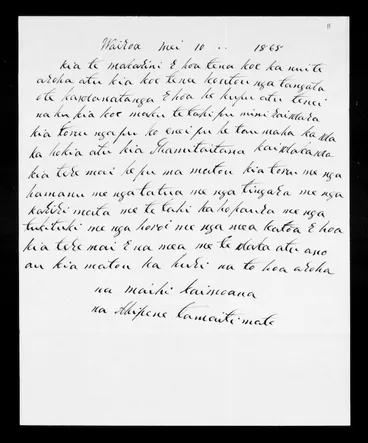 Wairoa mei 10 .. 1865
kia te makarini E hoa tena koe ka nui te
aroha atu kia koe tena koutou nga tangata
o te kawanatanga E hoa he kupu atu tenei
naku kia koe maku tetahi pu mini
kia toru nga pu ko enei pu he tou maha
ka hokia atu kia
kia tere mai he pu ma matou kia toru me nga
hamanu me nga tatua me nga tingara me nga
kariri mata me te tahi kahopaura me nga
tukituki me nga horoi me nga mea katoa E hoa
kia tere mai E na mea me te atu ano
au kia matou ka huri na to hoa aroha
na maihi kaimoana
na Ahipene tamaitimate
11